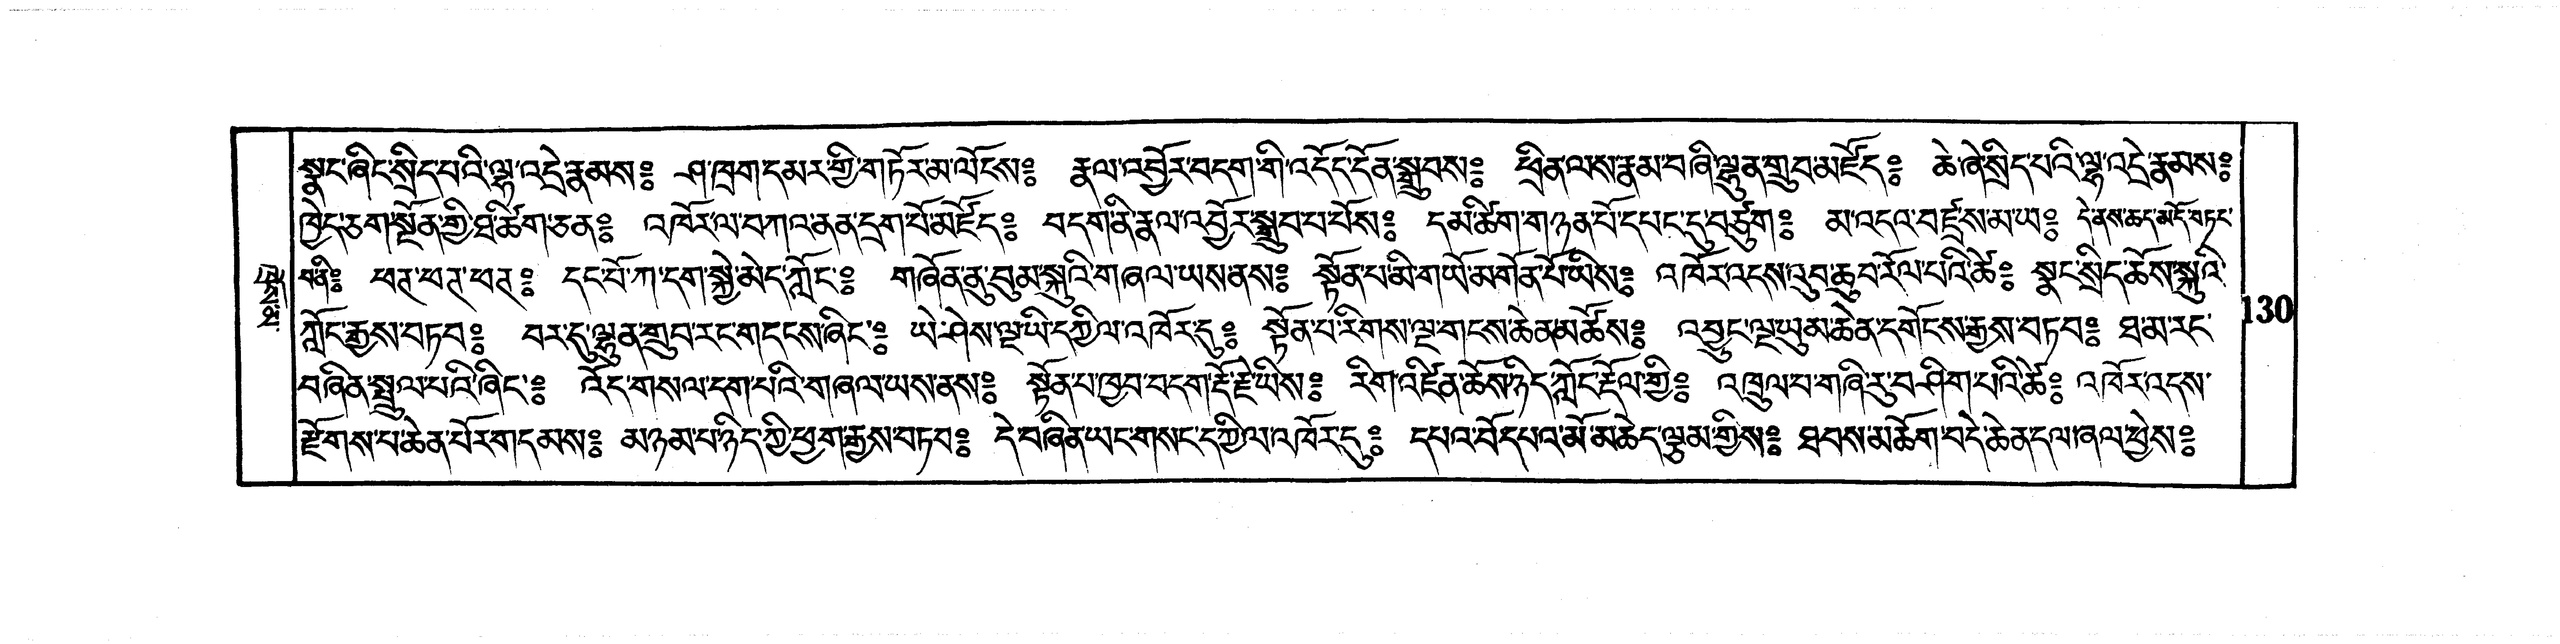 སྣང་ཞིང་སྲིད་པའི་ལྷ་འདྲེ་རྣམས༔ ཤ་ཁྲག་དམར་གྱི་གཏོར་མ་ལོངས༔ རྣལ་འབྱོར་བདག་གི་འདོད་དོན་སྒྲུབས༔ ཕྲིན་ལས་རྣམ་བཞི་ལྷུན་གྲུབ་མཛོད༔ ཆེ་ཞེ་སྲིད་པའི་ལྷ་འདྲེ་རྣམས༔
ཁྱེད་ཅག་སྔོན་གྱི་ཐ་ཚིག་ཅན༔ འཁོར་ལ་བཀའ་ནན་དྲག་པོ་མཛོད༔ བདག་ནི་རྣལ་འབྱོར་སྒྲུབ་པ་པོས༔ དམ་ཚིག་གཉན་པོ་དཔང་དུ་བཙུག༔ མ་འདའ་བཛྲ་ས་མ་ཡ༔ དེ་ནས་ཆད་མདོ་གཏང་
གནི༔ ཕཊ་ཕཊ་ཕཊ༔ དང་པོ་ཀ་དག་སྐྱེ་མེད་ཀློང༔ གཞོན་ནུ་བུམ་སྐུའི་གཞལ་ཡས་ནས༔ སྟོན་པ་མི་གཡོ་མགོན་པོ་ཡིས༔ འཁོར་འདས་འུབ་ཆུབ་རོལ་པའི་ཚེ༔ སྣང་སྲིད་ཆོས་སྐུའི་
ཀློང་རྒྱས་བཏབ༔ བར་དུ་ལྷུན་གྲུབ་རང་གདངས་ཞིང༔ ཡེ་ཤེས་ལྔ་ཡི་དཀྱིལ་འཁོར་དུ༔ སྟོན་པ་རིགས་ལྔ་གངས་ཆེན་མཚོས༔ འབྱུང་ལྔ་ཡུམ་ཆེན་དགོངས་རྒྱས་བཏབ༔ ཐ་མ་རང་
བཞིན་སྤྲུལ་པའི་ཞིང༔ འོད་གསལ་དག་པའི་གཞལ་ཡས་ནས༔ སྟོན་པ་ཁྱབ་བདག་རྡོ་རྗེ་ཡིས༔ རིག་འཛིན་ཆོས་ཉིད་ཀློང་རྡོལ་གྱི༔ འཁྲུལ་པ་གཞི་རུ་བཤིག་པའི་ཚེ༔ འཁོར་འདས་
རྫོགས་པ་ཆེན་པོར་གདམས༔ མཉམ་པ་ཉིད་ཀྱི་ཕྱག་རྒྱས་བཏབ༔ དེ་བཞིན་ཡང་གསང་དཀྱིལ་འཁོར་དུ༔ དཔའ་བོ་དཔའ་མོ་མཆེད་ལྕམ་གྱིས༔ ཐབས་མཆོག་བདེ་ཆེན་དལ་ཞལ་ཕྱེས༔
130